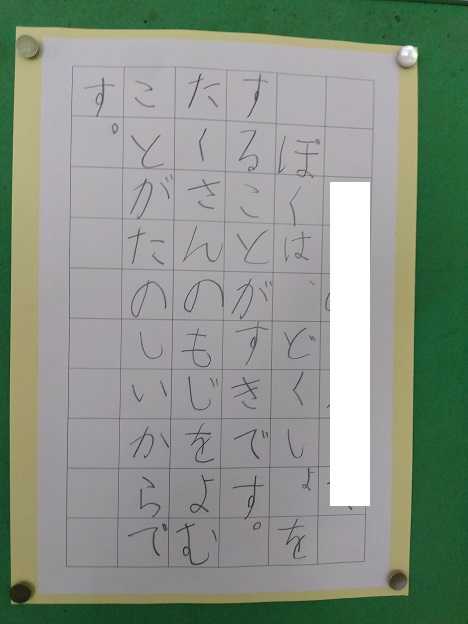 ぼくは、どくしょを
することが、すきです。
たくさんのもじをよむ
ことがたのしいからで
す。